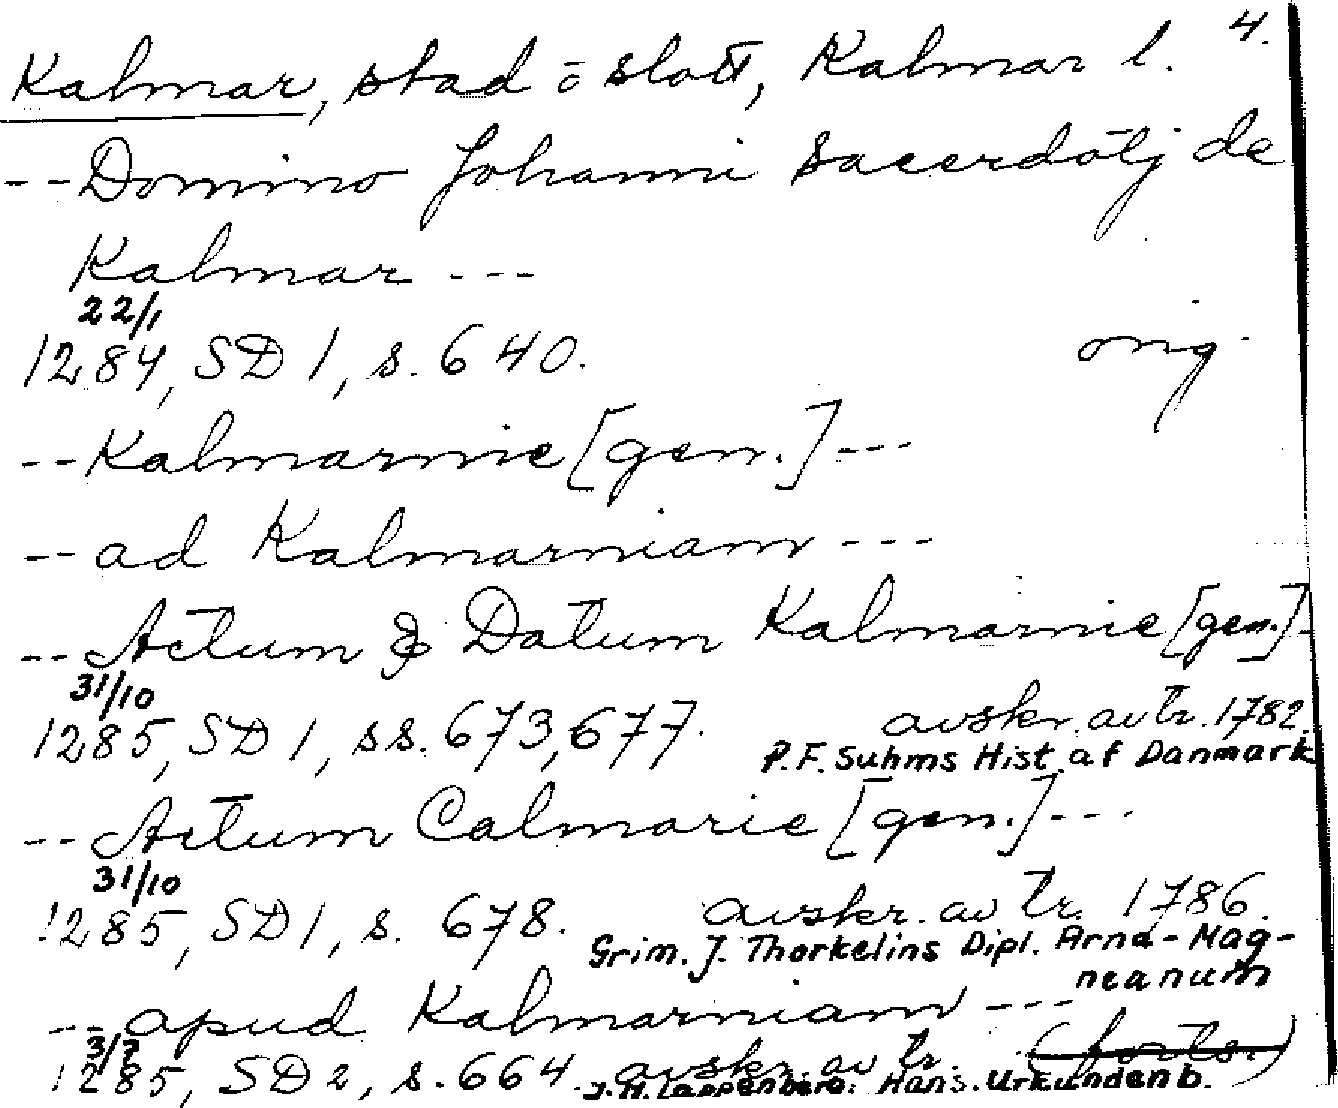 4.
Kalmar, stad o slott, Kalmar l.
--Domino Johanni sacerdotj de
Kalmar ---
22/1
1284, SD 1, s. 640. orig.
--Kalmarnie [gen.]---
--ad Kalmarniam---
--Actum & Datum Kalmarnie [gen.]-
31/10
1285, SD 1, ss. 673, 677. avskr. av tr. 1782
P.F. Suhms Hist. af Danmark
--Actum Calmarie [gen.]---
31/10
1285, SD 1, s. 678. avskr. av tr. 1786.
Grim. J. Thorkelins Dipl. Arna-Mag-
neanum
--apud Kalmarniam ---
(forts.)
1285, SD 2, s. 664. avskr. av tr.
J.M. Lappenberg. Hans. Urkundenb.